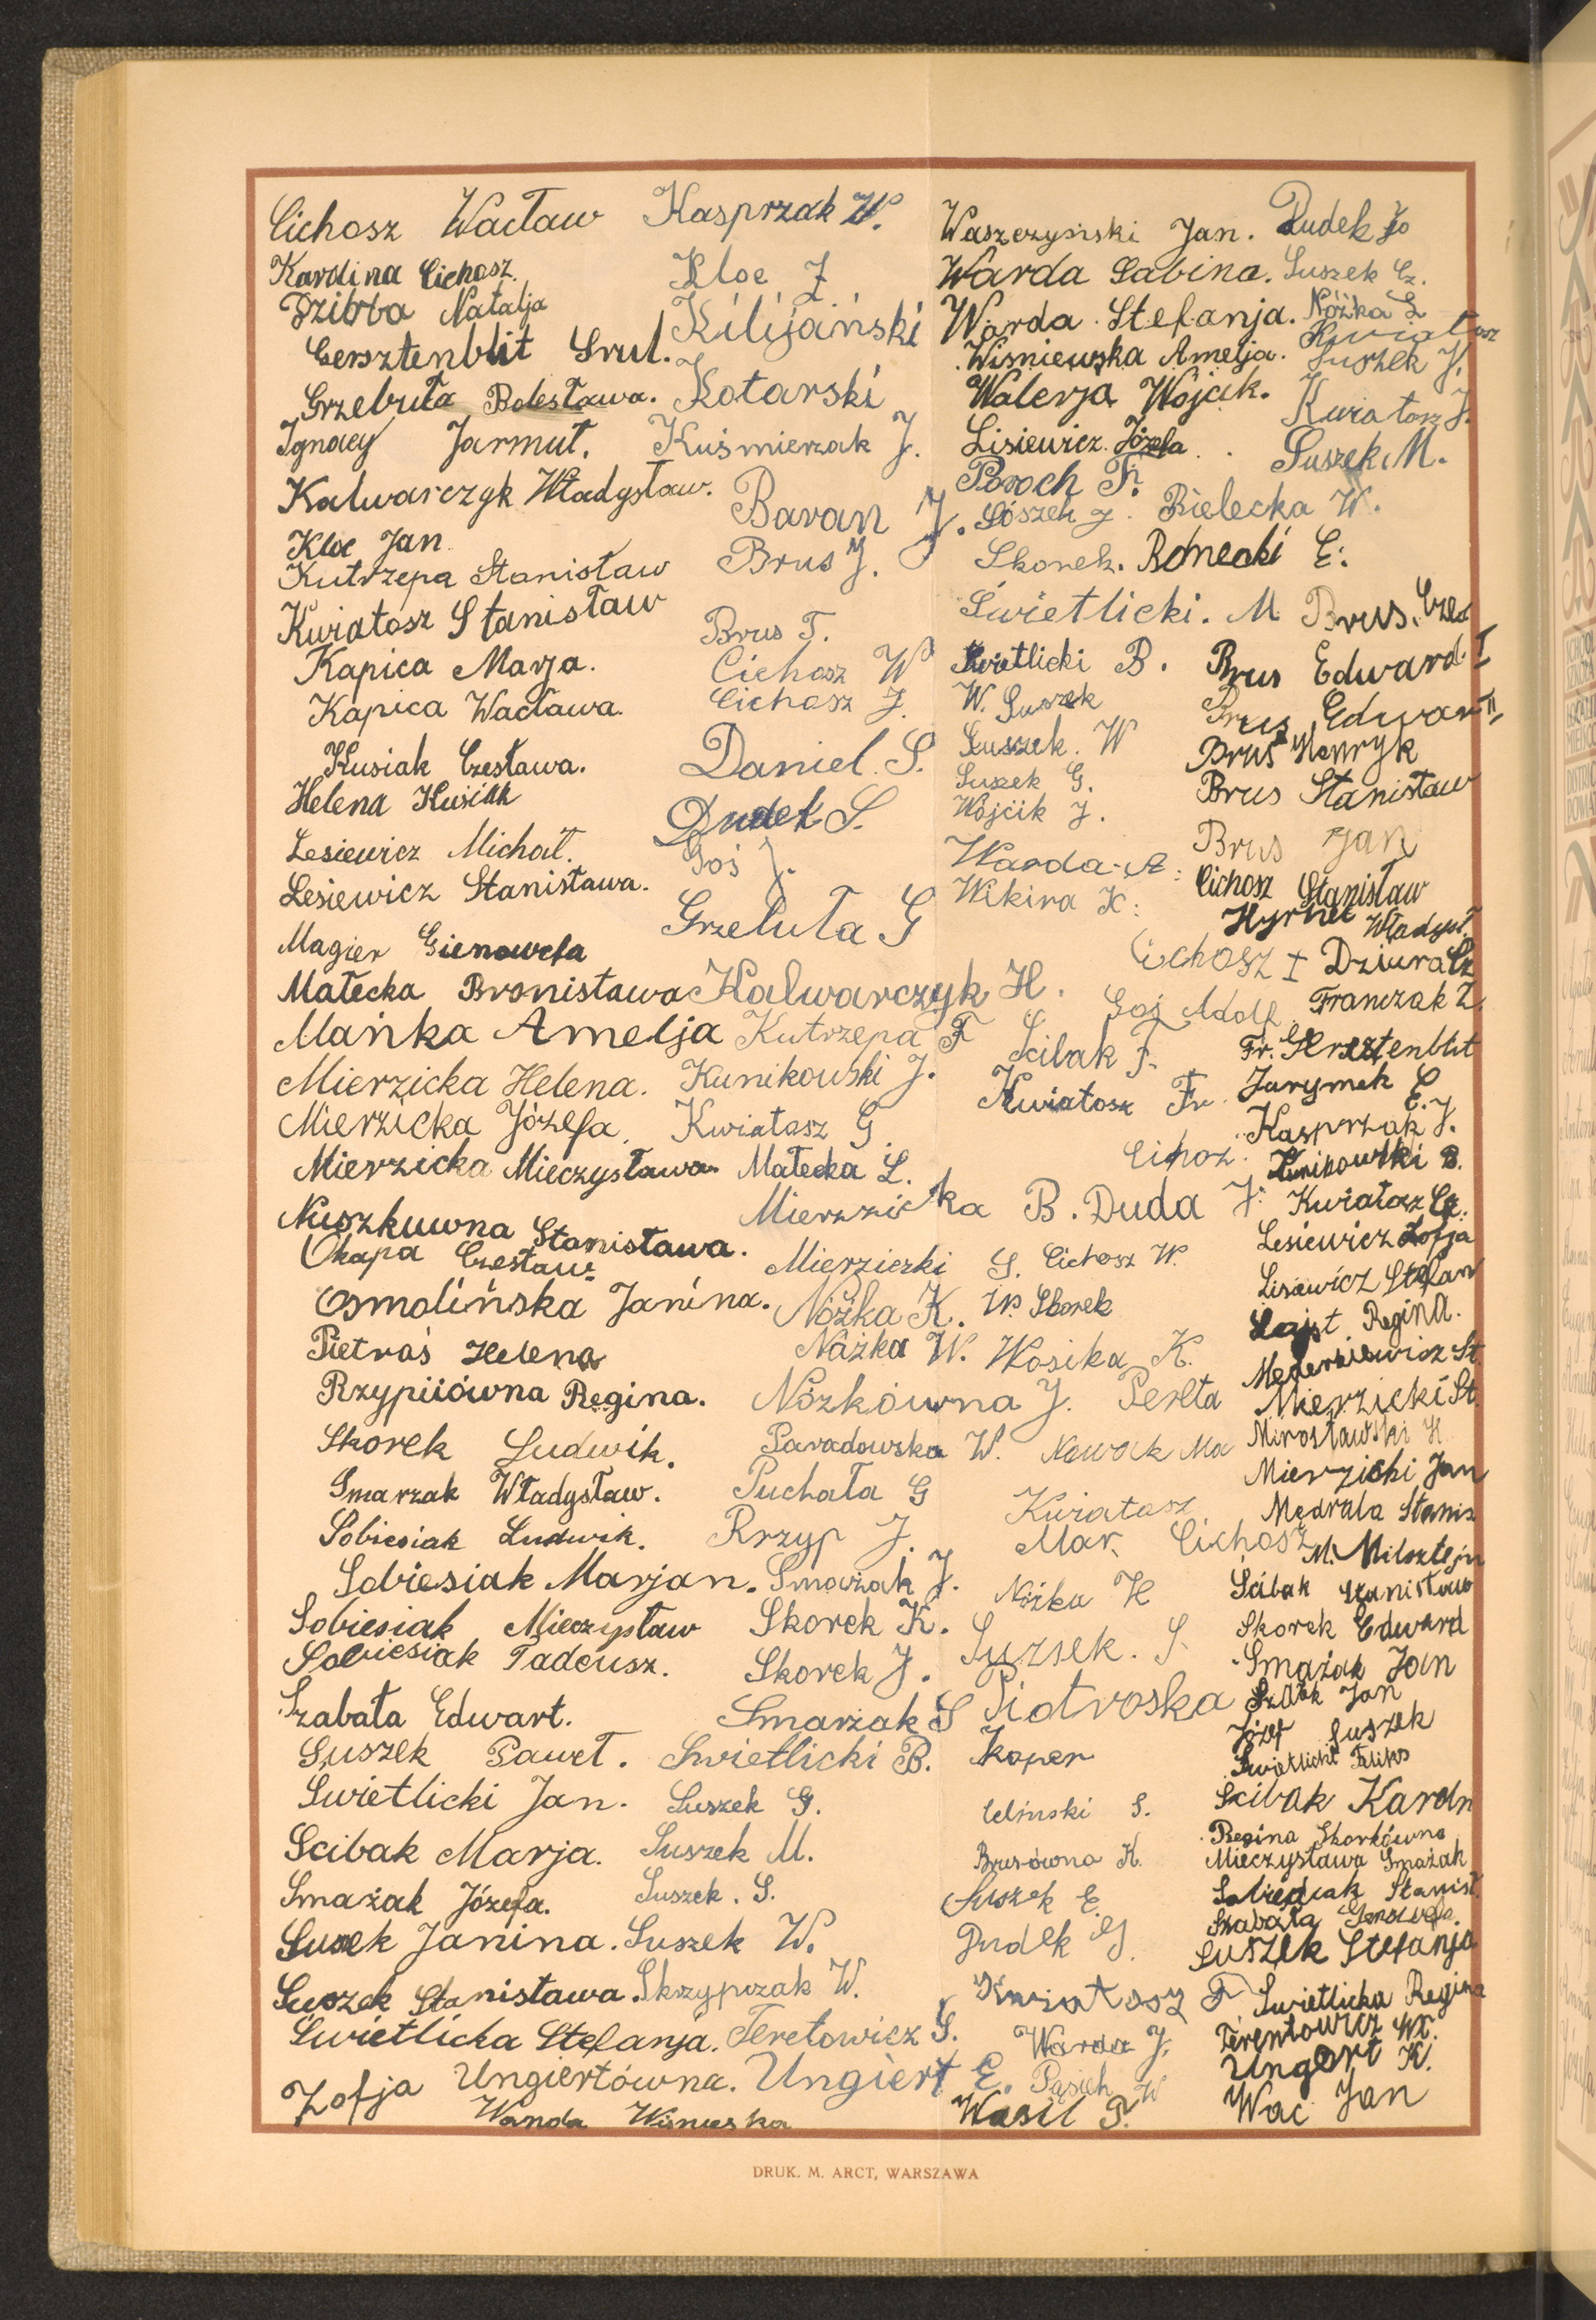 Cichosz Wacław
Karolina Cichosz.
Natalja
Gersztenblit Srul.
Grzebuła Bolesława.
Ignacy Jarmuł.
Kalwarczyk Władysław.
Kloc Jan
Kutrzepa Stanisław
Kwiatosz Stanisław
Kapica Marja.
Kapica Wacława.
Kusiak Czesława.
Helena Kusiak
Lesiewicz Michał.
Lesiewicz Stanisława.
Magier Gienowefa
Małecka Bronisława
Mańka Amelja
Mierzicka Helena.
Mierzicka Józefa,
Mierzicka Mieczysława
Nuszkuwna Stanisława.
Okapa Czesław
Osmolińska Janina.
Pietraś Helena
Regina.
Skorek Ludwik.
Smarzak Władysław.
Sobiesiak Ludwik.
Sobiesiak Marjan.
Sobiesiak Mieczysław
Sobiesiak Tadeusz.
Szabała Edwart.
Suszek Paweł.
Swietlicki Jan.
Scibak Marja.
Smażak Józefa.
Susek Janina.
Suszek Stanisława.
Swietlicka Stefanja.
Zofja Ungiertówna.
Wanda Wisnieska
Kasprzak W.
Kloc J
Kilijański J
Kotarski
Kuśmierzak J.
Baran J.
Brus J.
Brus T.
Cichosz W
Cichosz J.
Daniel S.
Dudek S.
Goś J.
Grzeluła G
Kalwarczyk H.
Kutrzepa F
Kunikowski J.
Kwiatosz G
Małecka L.
Mierzicka B.
Mierzicki S.
Nóżka K.
Nażka W.
Nózkówna J.
Paradowska W.
Puchała G
Rrzyp J.
Smażak J.
Skorek K.
Skorek J.
Smarzak S
Swietlicki B.
Suszek G.
Suszek M.
Suszek. S.
Suszek W.
Skrzypczak W.
Teretowicz S.
Ungiert E.
Waszczyński Jan.
Warda Sabina.
Warda Stefanja.
Wiśniewska Amelja.
Walerja Wójcik.
Lisiewicz Józefa
Poroch Fr.
Skorek.
Świetlicki. M
Świetlicki B.
W. Suszek
Suszek. W
Suszek G.
Wójcik J.
Warda A.
Wikira K.
Cichosz I
Goś Adolf
Scibak F.
Kwiatosz Fr.
Cichoz.
Duda J.
Cichosz W.
W. Skorek
Wosika K.
Perłta
Nowak Ma
Kwiatosz
Mar. Cichosz
Nóżka K
Suzsek. S
Piotroska
Koper
Brusówna K.
Suszek E.
Dudek G.
Kwiatosz F
Warda J.
Pasich W
Wasil P.
Dudek Jo
Suszek Cz.
Nóżka L
Kwiatosz
Suszek J.
Kwiatosz J.
Suszek M.
Bielecka W.
E.
Brus. Czes
Brus Edward. I
Brus Edward II
Brus Henryk
Brus Stanisław
Brus Jan
Cichosz Stanisław
Władysł.
Dziura Cz
Franczak Z.
Fr. Gersztenblit
Jarymek E.
Kasprzak J.
Kunikowski B.
Kwiatosz Cz.
Lesiewicz Zofja
Lisiewicz Stefan
Łajst Regina.
St.
Mierzicki St.
Mirosławski H
Mierzicki Jan
Mędrala Stanis
M. Milsztejn
Ścibak Stanisław
Skorek Edward
Smażak Jan
Jan
Józef Suszek
Swietlicki Feliks
Scibak Karoln
Regina Skorkówna
Mieczysława Smażak
Sobiesiak Stanisł.
Szabała Genowefa.
Suszek Stefanja
Swietlicka Regina
Terentowicz Wł.
Ungert K.
Wac Jan
DRUK. M. ARCT, WARSZAWA